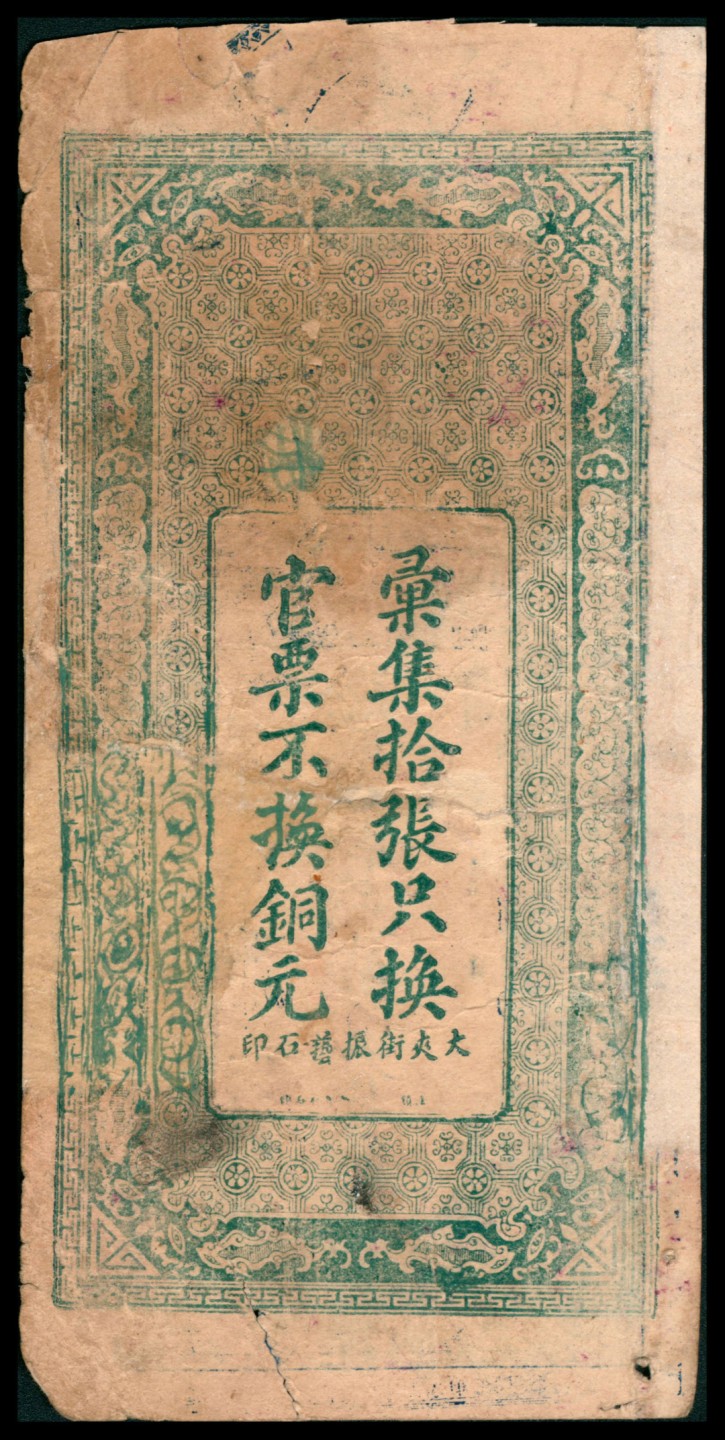 彙集拾張只換
官票不換銅元
大夾街振藝石印